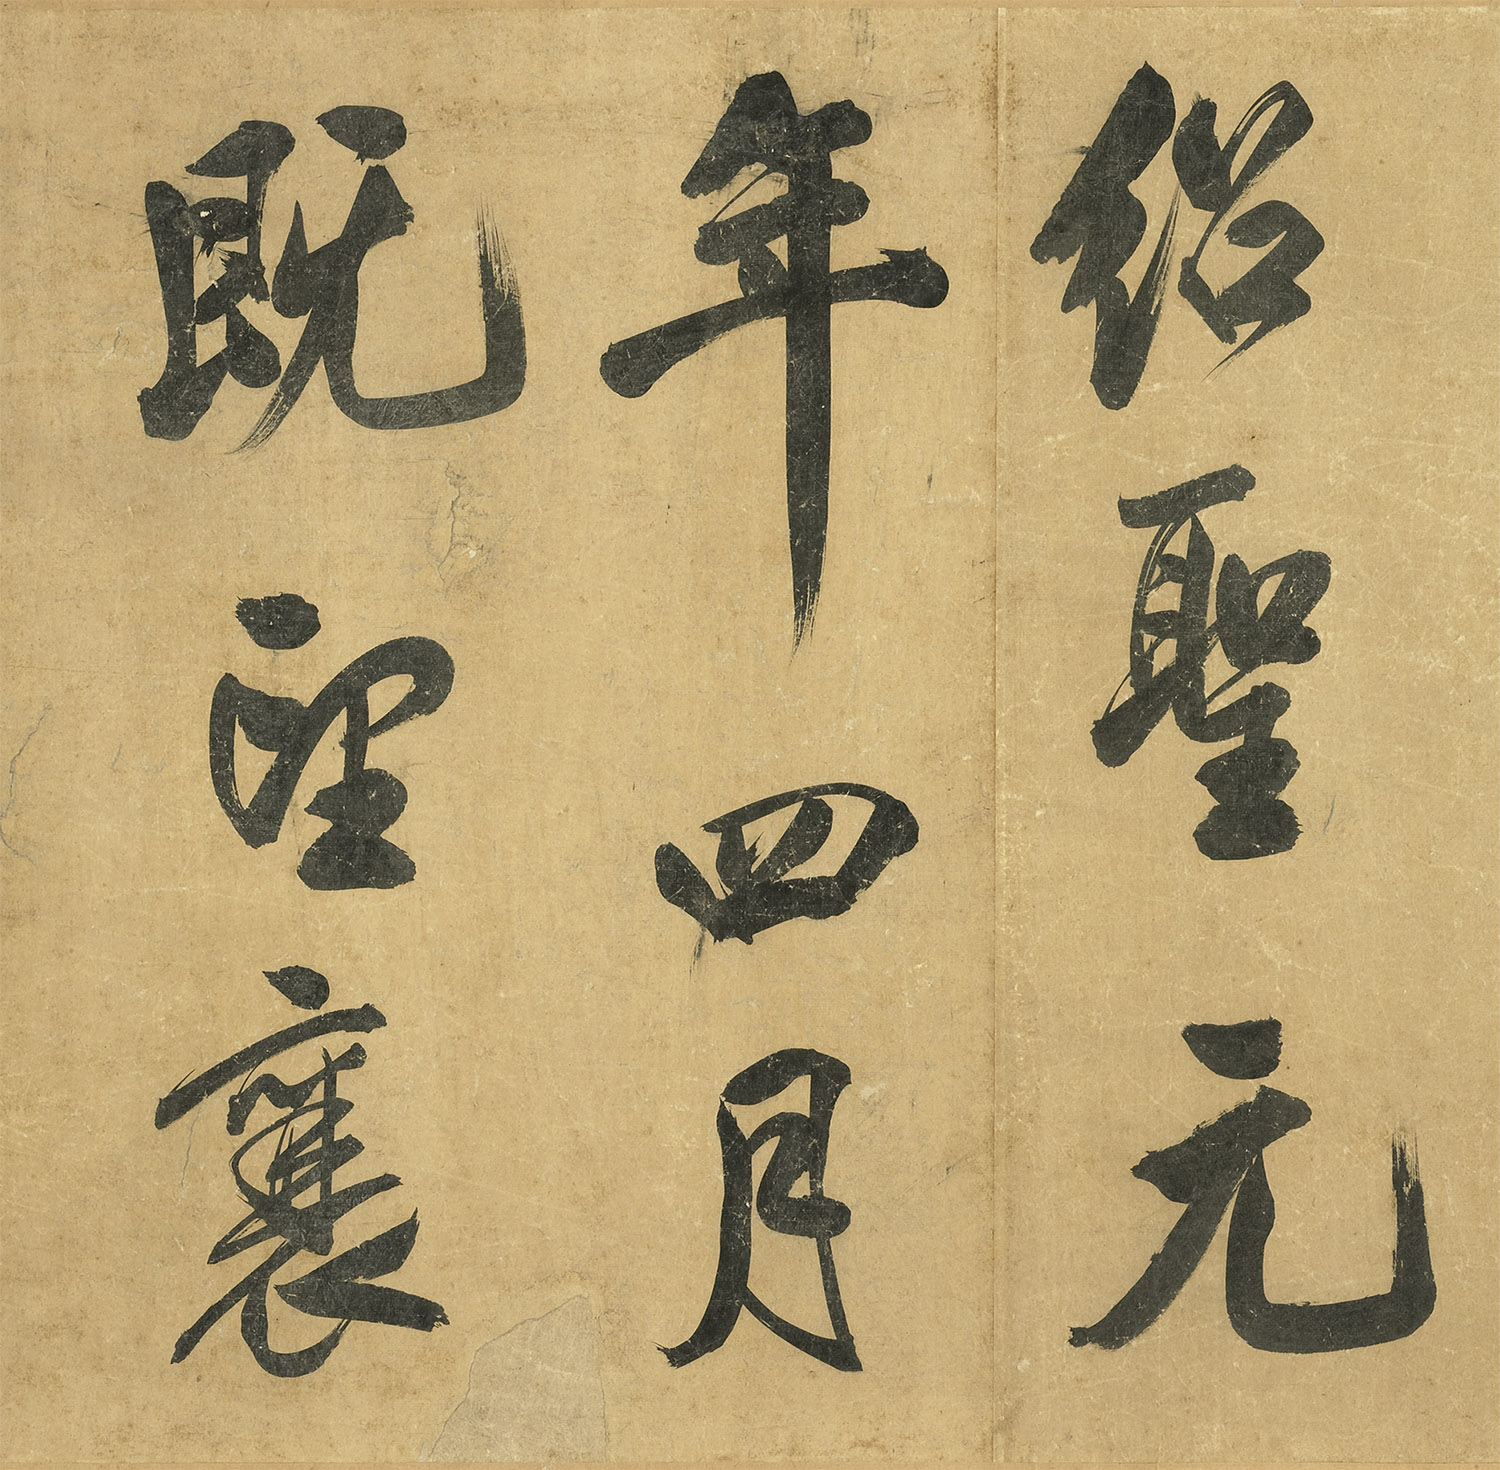 紹聖元
年四月
既望襄